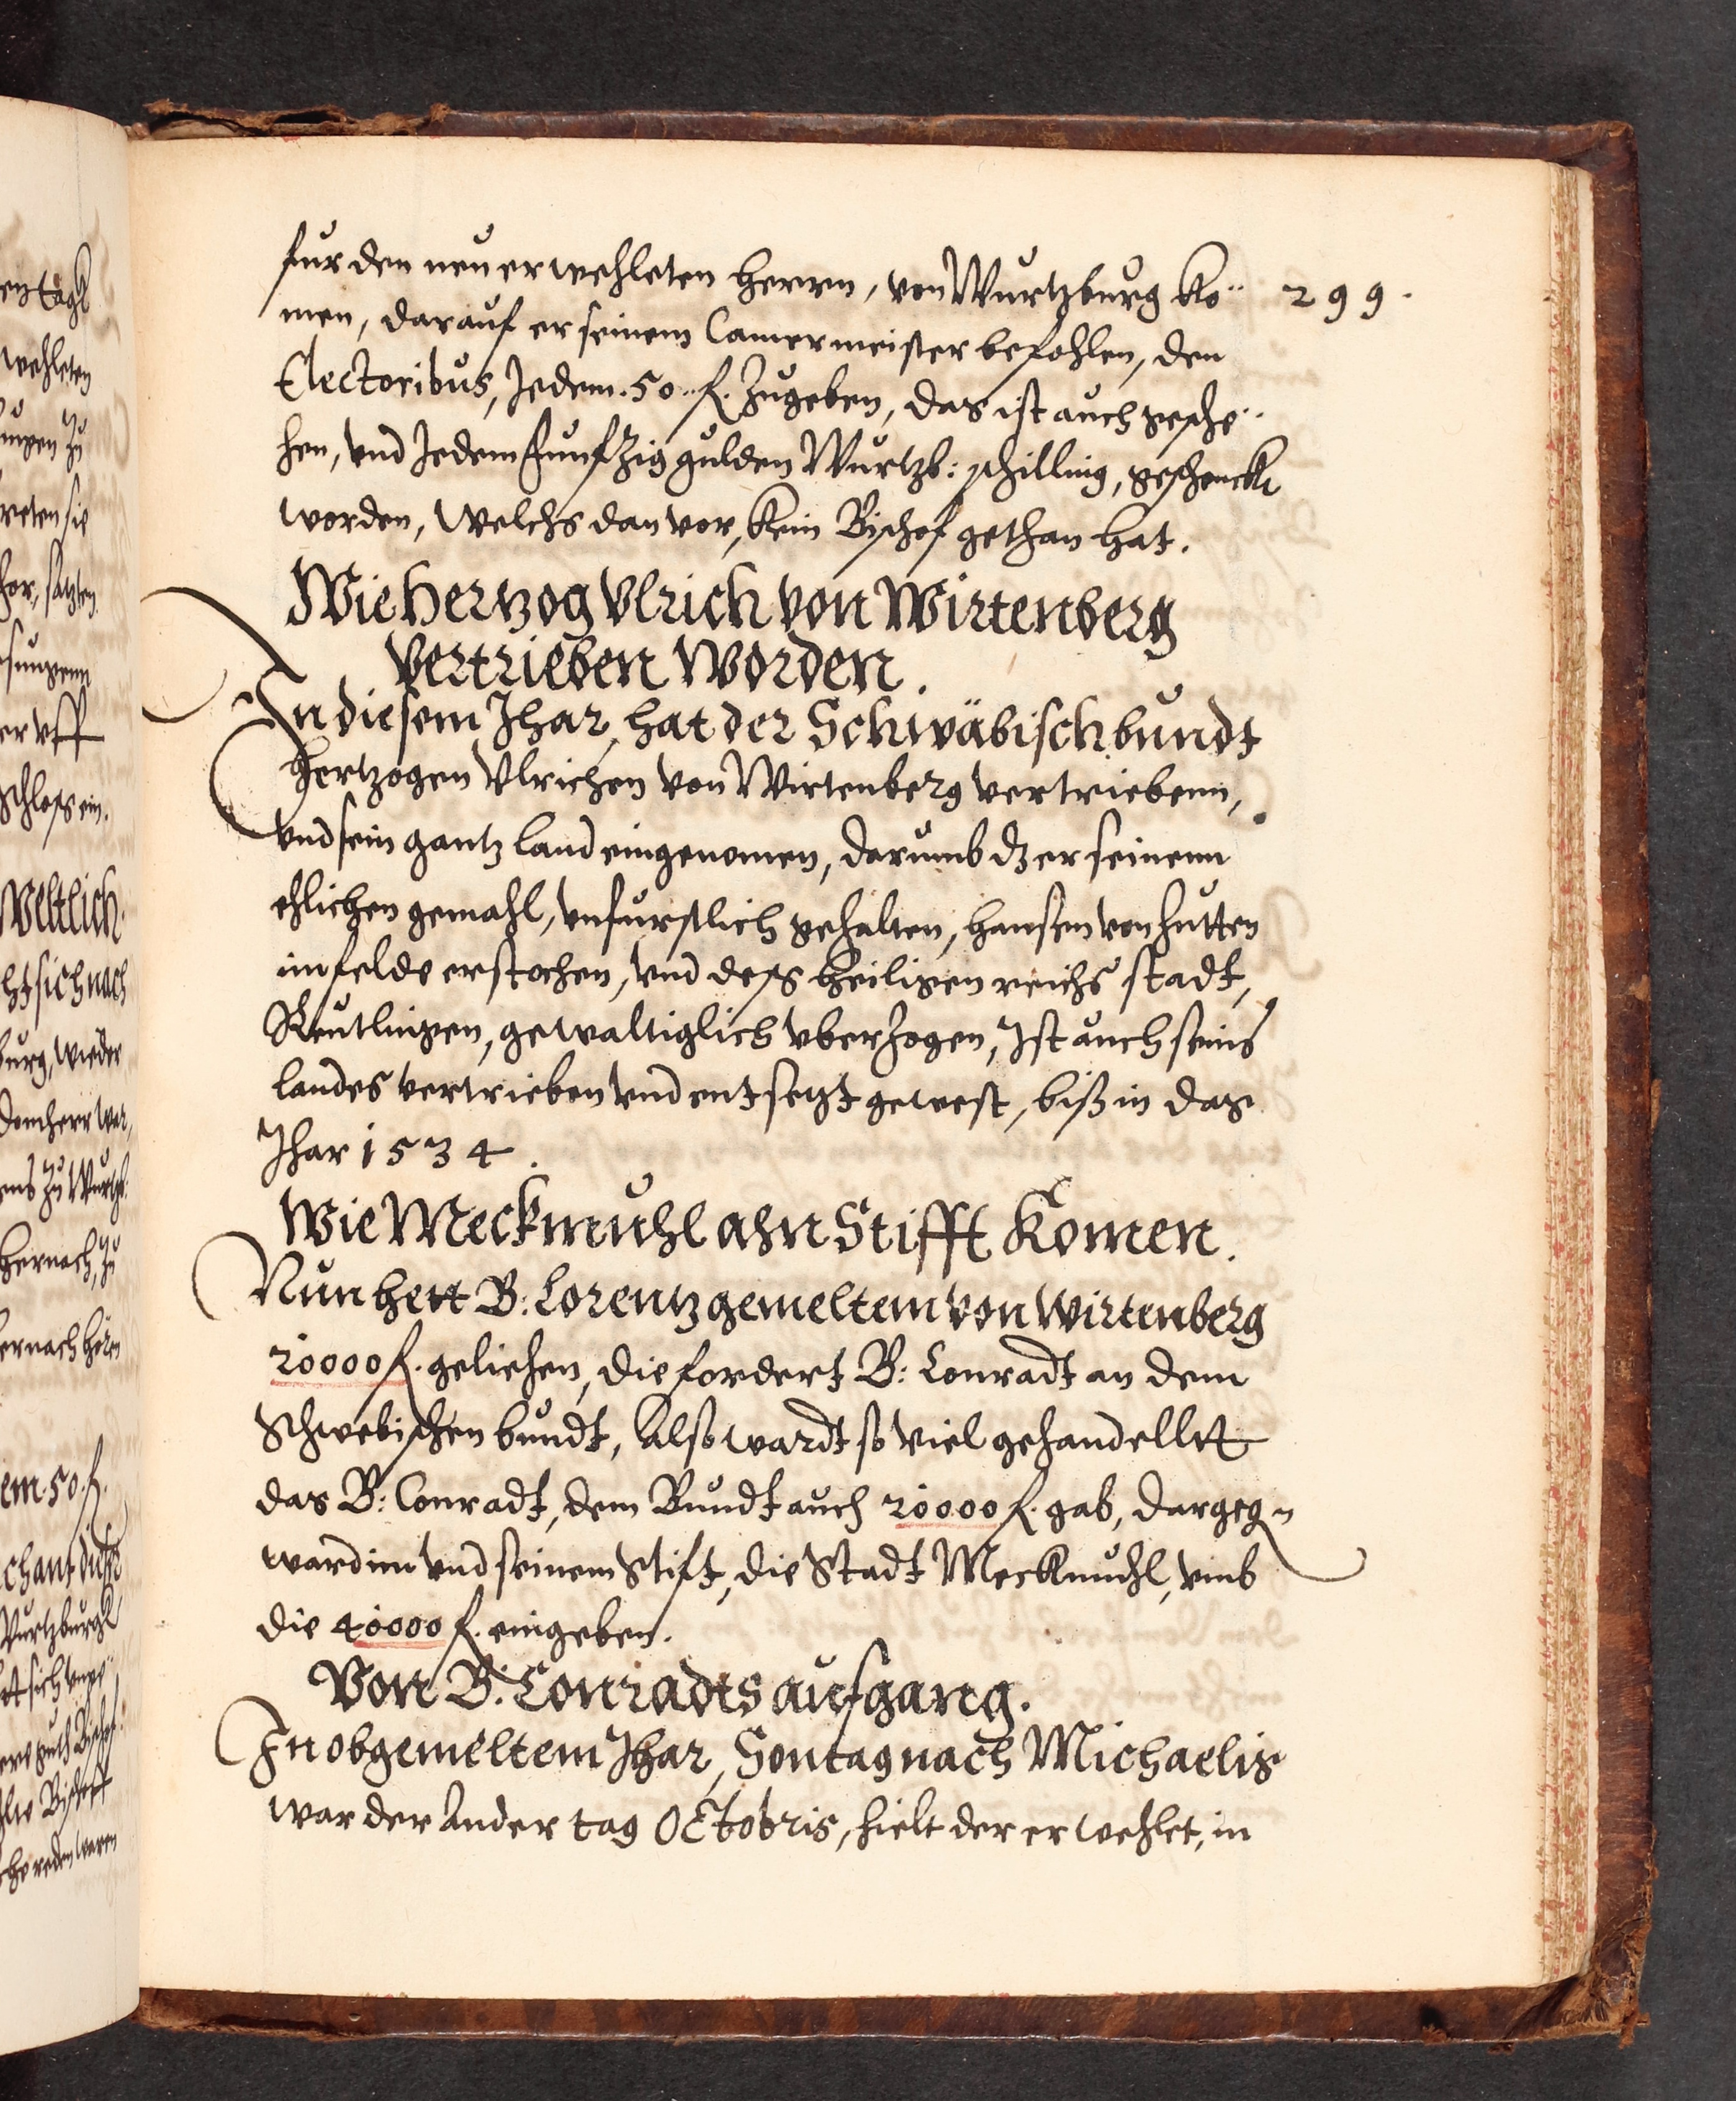 fur den neu erwehleten Herrn, von Wurtzburg ko¨
299.
men, darauf er seinem Camermeister befohlen, den
Electoribus, Jedem .50. fl. Zugeben, das ist auch gesche¨
hen, vnd Jedem funfzig gulden Wurtzb: schilling, geschenckt
worden, Welchs dan vor, kein Bischof gethan hat.
Wie Hertzog Vlrich von Wirtenberg
vertrieben worden.
In diesem Jhar, hat der Schwäbisch bundt
Hertzogen Vlrichen von Wirtenberg vertriebenn,
vnd sein gantz land eingenomen, darumb dz er seinenn
ehlichen gemahl, vnfurstlich gehalten, Hansen von Hutten
im felde erstochen, vnd deß Heiligen reichs stadt,
Reutlingen, gewaltiglich vberzogen, Ist auch seins
landes vertrieben vnd entsetzt gewest, biß in das
Jhar 1534.
Wie Meckmuhl ahn Stifft komen.
Nun hett B: Lorentz gemeltem von Wirtenberg
20000 fl. geliehen, die fordert B: Conradt an dem
Schwebischen bundt, Also wardt so viel gehandellt
das B: Conradt, dem Bundt auch 20000 fl. gab, dargegn
ward im vnd seinem Stift, die Stadt Meckmuhl, vmb
die 40000 fl. eingeben.
Von B: Conradts aufgang.
In obgemeltem Jhar, Sontag nach Michaelis
war der Ander tag Octobris, hielt der erwehlet, in